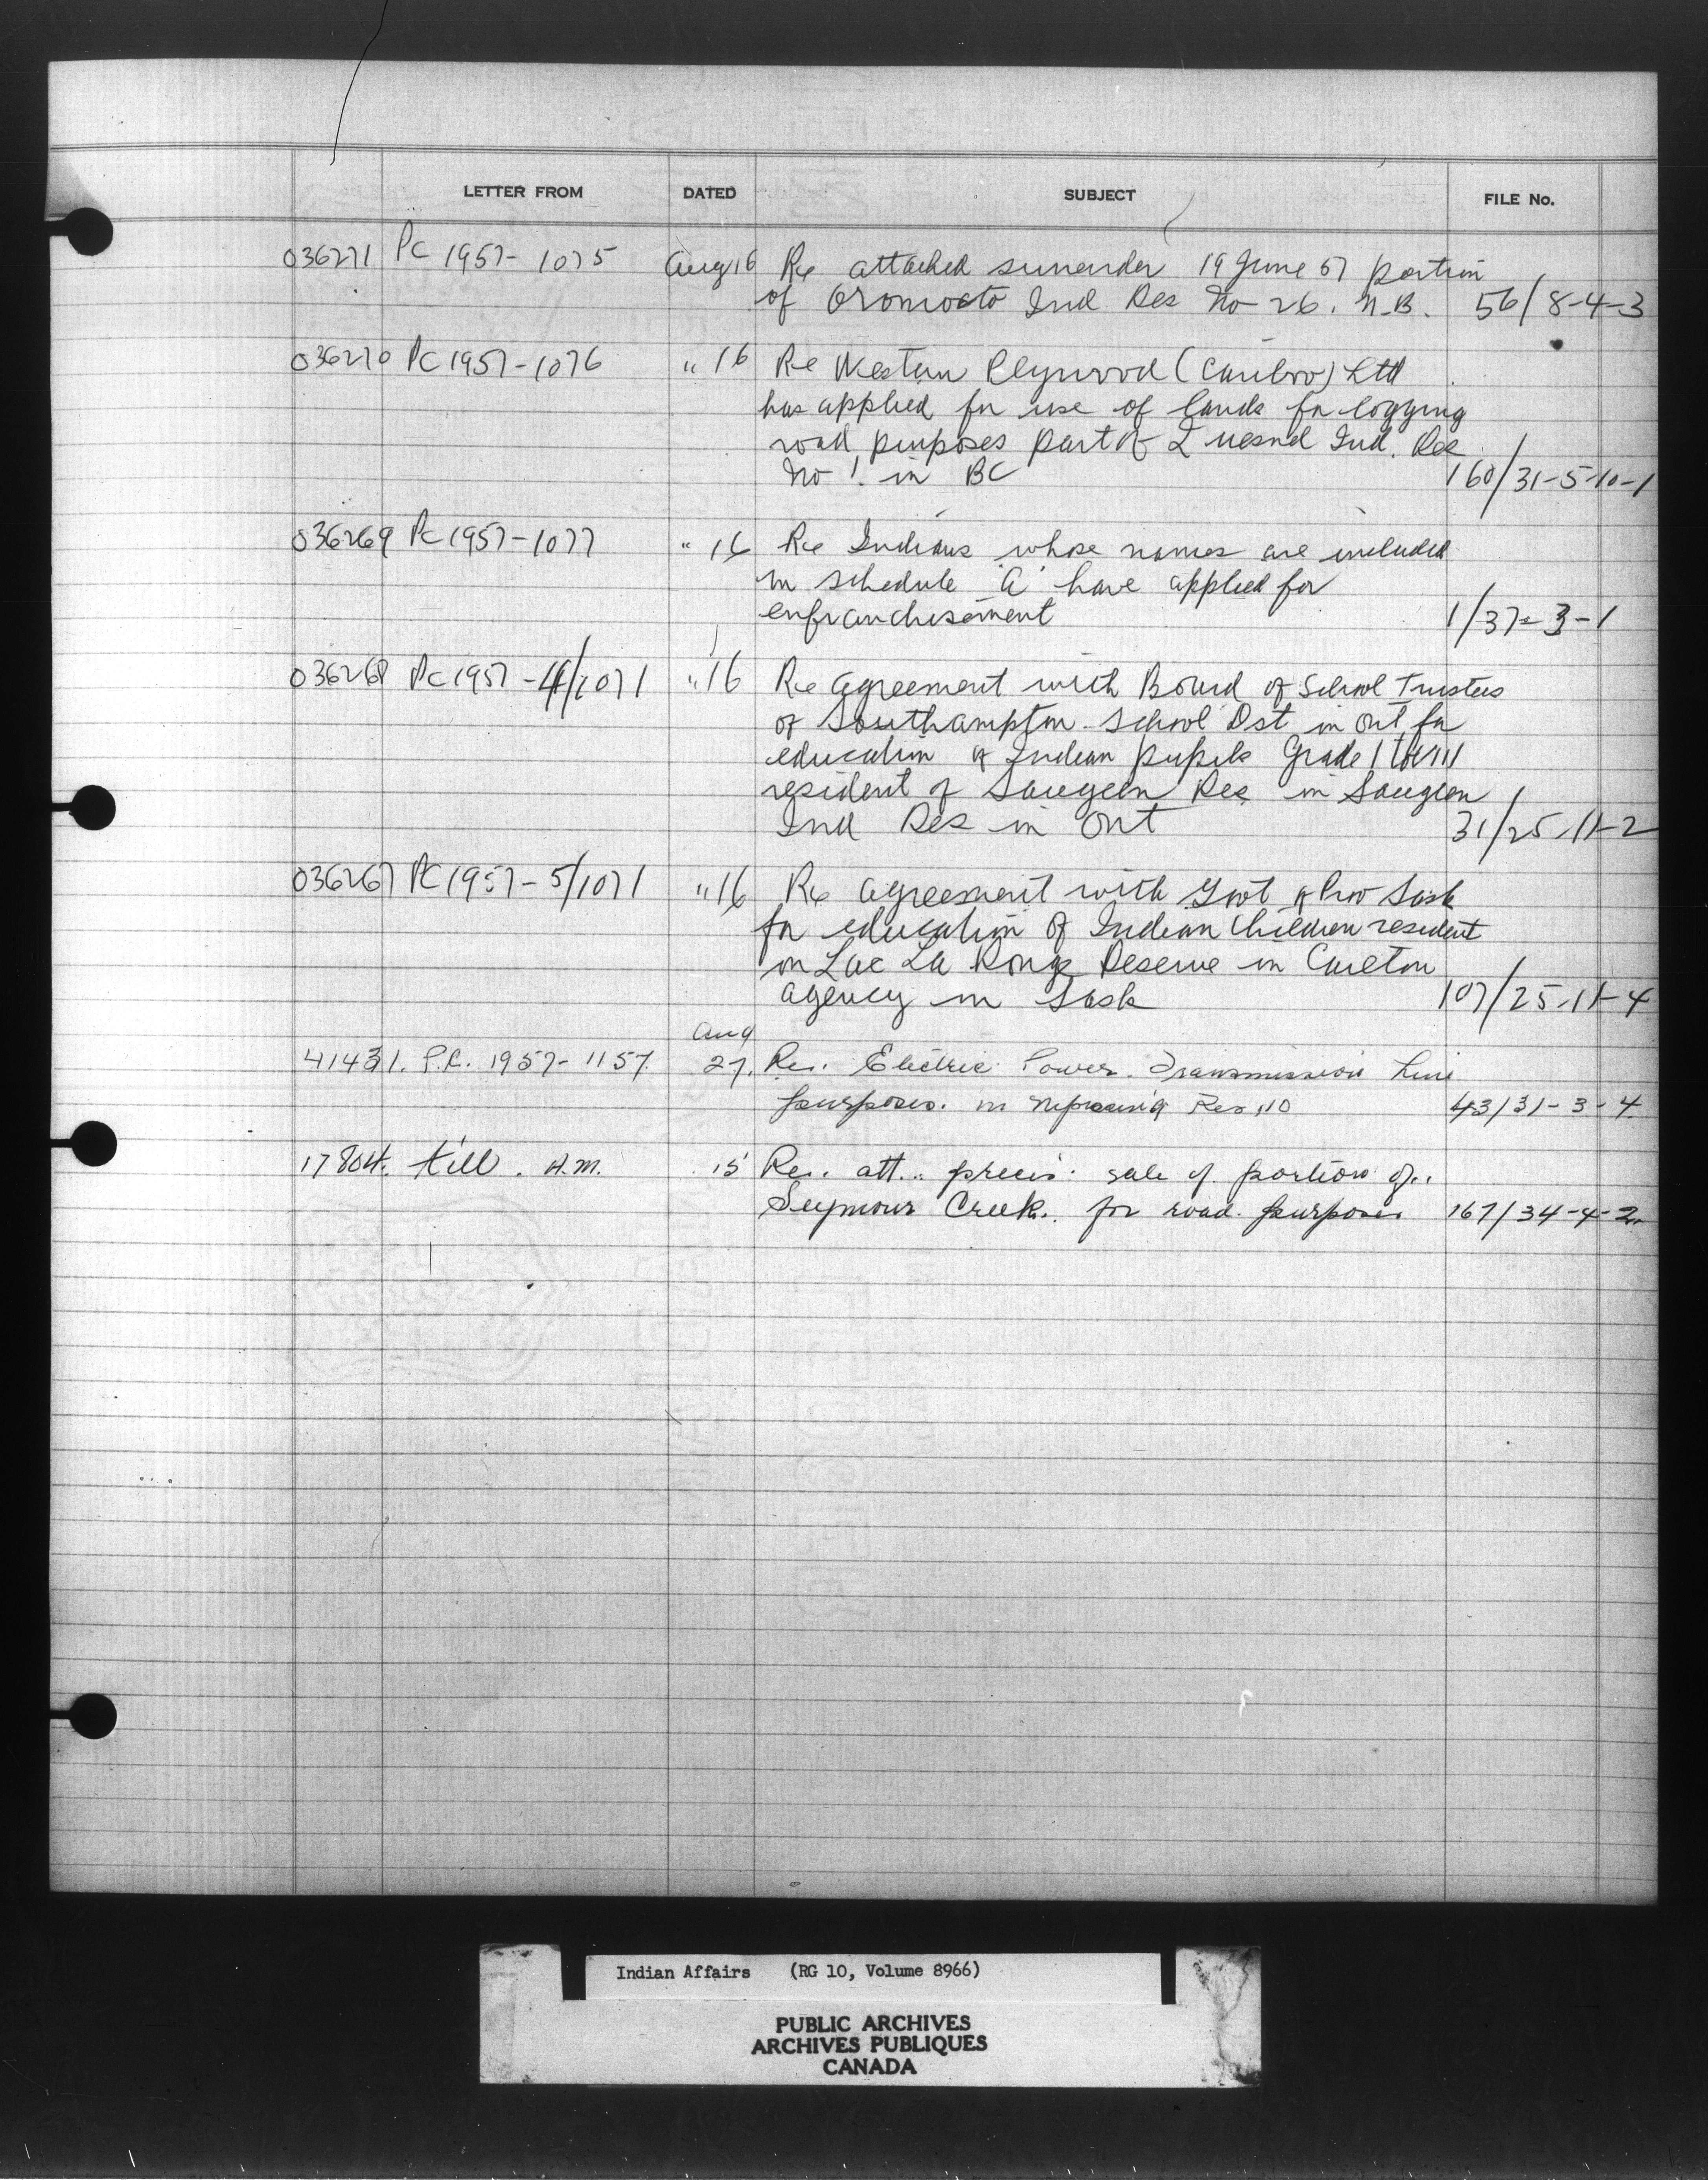 LETTER FROM DATED SUBJECT FILE No.
036271 PC 1957-1075 Aug 16 Re attached surrender 19 June 57 portion
of Oromocto Ind Res No 26. N.B. 56/8-4-3
036270 PC 1957-1076 " 16 Re Western Plywood (Cariboo) Ltd
has applied for use of lands for logging
road purposes part of Quesnel Ind. Res
No 1. in BC 160/31-5-10-1
036269 PC 1957-1077 " 16 Re Indians whose names are included
in schedule "A" have applied for
enfranchisement 1/37-3-1
036268 PC 1957-4/1071 " 16 Re Agreement with Board of School Trustees
of Southampton School Dst in Ont for
education of Indian pupils Grade I to VIII
resident of Saugeen Res in Saugeen
Ind Res in Ont 31/25-11-2
036267 PC 1957-5/1071 " 16 Re agreement with Govt of Prov Sask
for education of Indian Children resident
on Lac La Ronge Reserve in Carlton
agency in Sask 107/25-11-4
Aug
41431. P.C. 1957-1157. 27. Re. Electric Power Transmission Line
purposes. in Res 10 43/31-3-4
17804. Hill. H.M. 15 Re. att. precis: sale of portion of
Seymour Creek. for road purposes 167/34-4-2
Indian Affairs (RG 10, Volume 8966)
PUBLIC ARCHIVES
ARCHIVES PUBLIQUES
CANADA